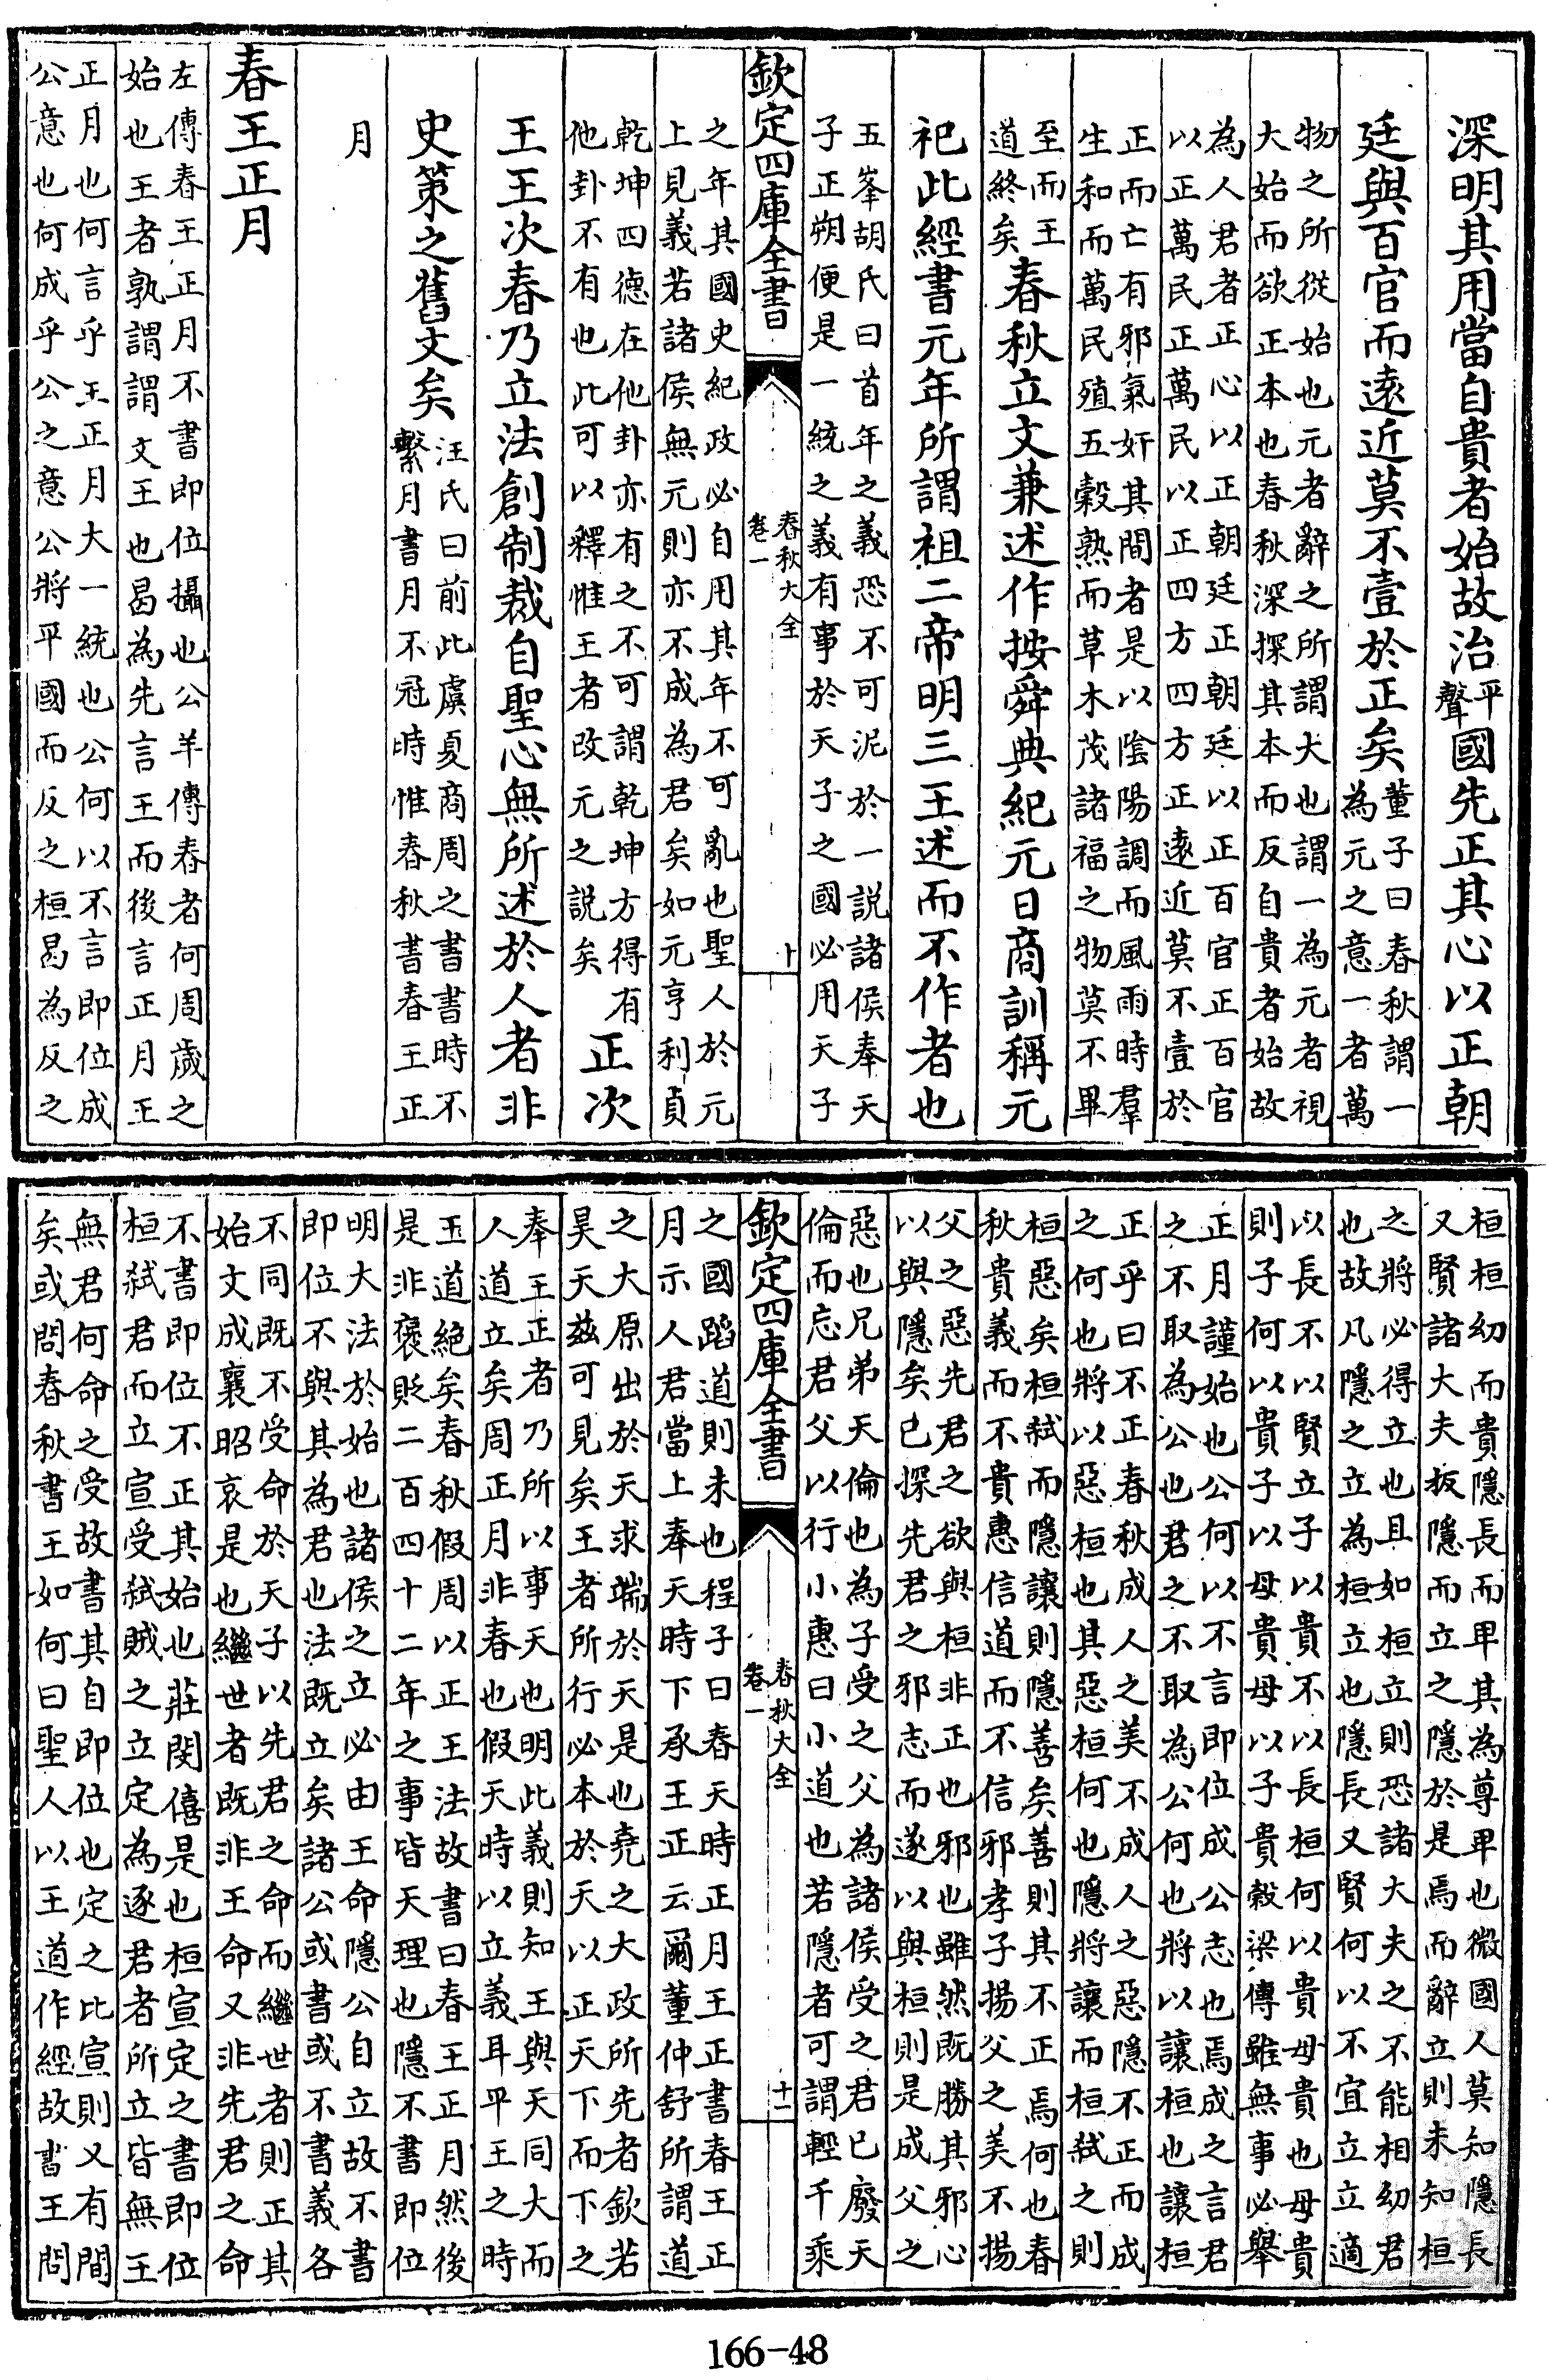 深明其用當自貴者始故治平聲國先正其心以正朝
廷與百官而遠近莫不壹於正矣董子曰春秋謂一
為元之意一者萬
物之所從始也元者辭之所謂大也謂一為元者視
大始而欲正本也春秋深探其本而反自貴者始故
為人君者正心以正朝廷正朝廷以正百官正百官
以正萬民正萬民以正四方四方正遠近莫不壹於
正而亡有邪氣奸其間者是以陰陽調而風雨時羣
生和而萬民殖五穀熟而草木茂諸福之物莫不畢
至而王
道終矣春秋立文兼述作按舜典紀元日商訓稱元
祀此經書元年所謂祖二帝明三王述而不作者也
五峯胡氏曰首年之義恐不可泥於一説諸侯奉天
子正朔便是一統之義有事於天子之國必用天子
欽定四庫全書
春秋大全
卷一
十
之年其國史紀政必自用其年不可亂也聖人於元
上見義若諸侯無元則亦不成為君矣如元亨利貞
乾坤四德在他卦亦有之不可謂乾坤方得有
他卦不有也此可以釋惟王者改元之説矣正次
王王次春乃立法創制裁自聖心無所述於人者非
史策之舊文矣汪氏曰前此虞夏商周之書書時不
繫月書月不冠時惟春秋書春王正
月
春王正月
左傳春王正月不書即位攝也公羊傳春者何周歲之
始也王者孰謂謂文王也曷為先言王而後言正月王
正月也何言乎王正月大一統也公何以不言即位成
公意也何成乎公之意公將平國而反之桓曷為反之
桓桓幼而貴隱長而卑其為尊卑也微國人莫知隱長
又賢諸大夫扳隱而立之隱於是焉而辭立則未知桓
之將必得立也且如桓立則恐諸大夫之不能相幼君
也故凡隱之立為桓立也隱長又賢何以不宜立立適
以長不以賢立子以貴不以長桓何以貴母貴也母貴
則子何以貴子以母貴母以子貴穀梁傳雖無事必舉
正月謹始也公何以不言即位成公志也焉成之言君
之不取為公也君之不取為公何也將以讓桓也讓桓
正乎曰不正春秋成人之美不成人之惡隱不正而成
之何也將以惡桓也其惡桓何也隱將讓而桓弑之則
桓惡矣桓弑而隱讓則隱善矣善則其不正焉何也春
秋貴義而不貴惠信道而不信邪孝子揚父之美不揚
父之惡先君之欲與桓非正也邪也雖然既勝其邪心
以與隱矣已探先君之邪志而遂以與桓則是成父之
惡也兄弟天倫也為子受之父為諸侯受之君已廢天
倫而忘君父以行小惠曰小道也若隱者可謂輕千乘
欽定四庫全書
春秋大全
卷一
十一
之國蹈道則未也程子曰春天時正月王正書春王正
月示人君當上奉天時下承王正云爾董仲舒所謂道
之大原出於天天求端於天是也堯之大政所先者欽若
昊天茲可見矣王者所行必本於天以正天下而下之
奉王正者乃所以事天也明此義則知王與天同大而
人道立矣周正月非春也假天時以立義耳平王之時
王道絶矣春秋假周以正王法故書曰春王正月然後
是非褒貶二百四十二年之事皆天理也隱不書即位
明大法於始也諸侯之立必由王命隱公自立故不書
即位不與其為君也法既立矣諸公或書或不書義各
不同既不受命於天子以先君之命而繼世者則正其
始文成襄昭哀是也繼世者既非王命又非先君之命
不書即位不正其始也莊閔僖是也桓宣定之書即位
桓弑君而立宣受弑賊之立定為逐君者所立皆無王
無君何命之受故書其自即位也定之比宣則又有間
矣或問春秋書王如何曰聖人以王道作經故書王問
166-48